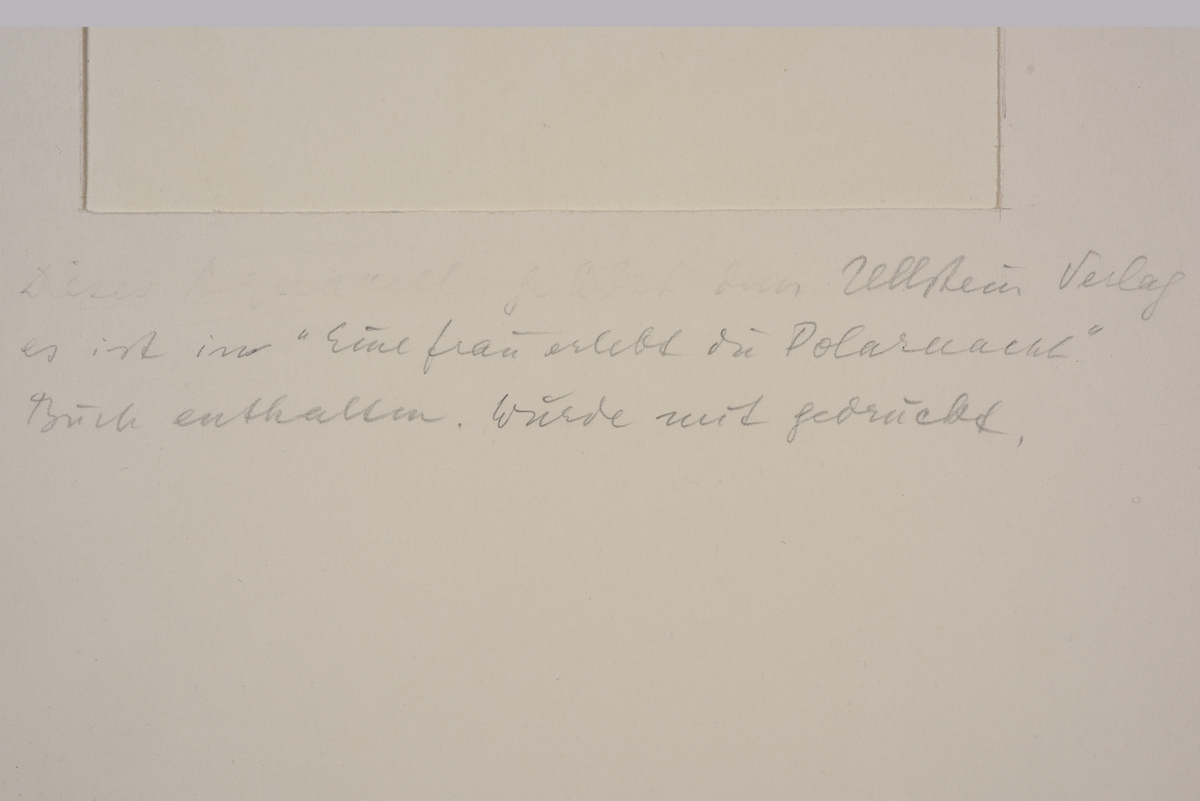 Dieses gehört dem Ullstein Verlag
es ist im "Eine Frau erlebt die Polarnacht"
Buch enthalten. Wurde mit gedruckt,